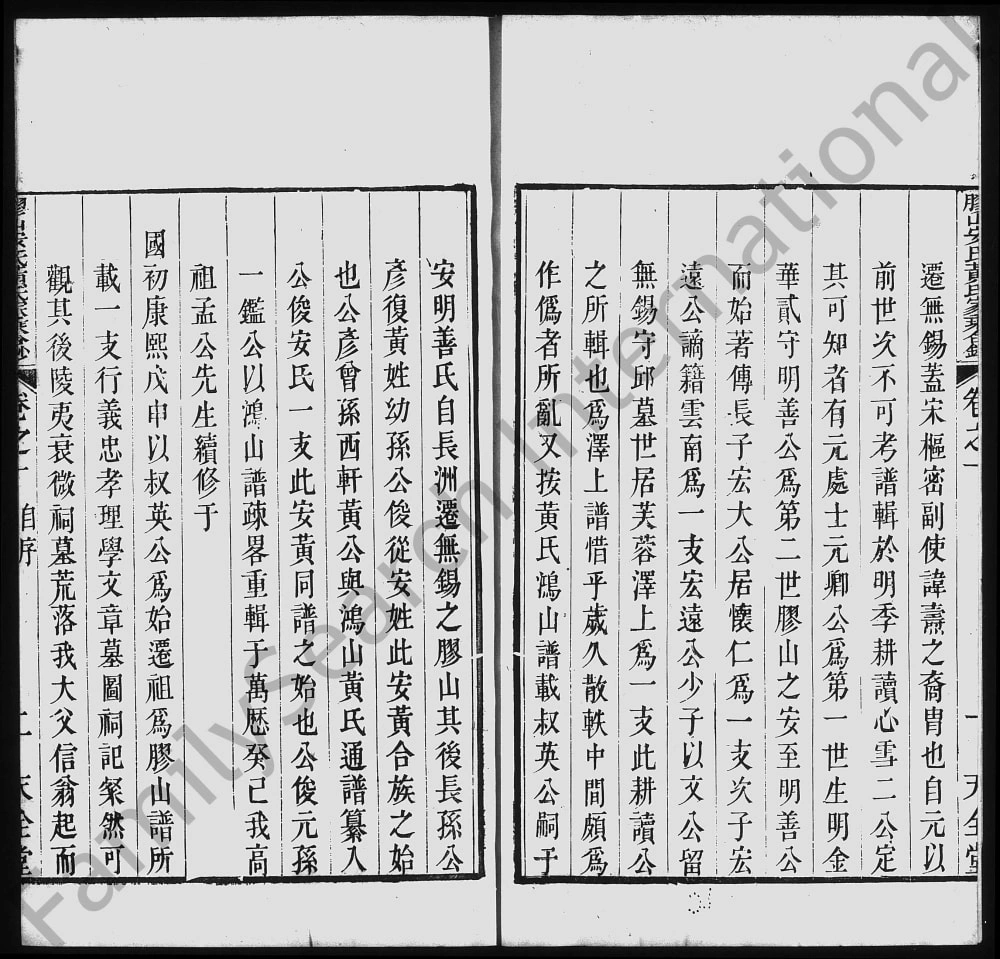 膠山安氏黃氏家乘合鈔
卷之一
一
天全堂
遷無錫蓋宋樞密副使諱燾之裔胄也自元以
前世次不可考譜輯於明季耕讀心雪二公定
其可知者有元處士元卿公爲第一世生明金
華貳守明善公爲第二世膠山之安至明善公
而始著傳長子宏大公居懷仁爲一支次子宏
遠公謫籍雲南爲一支宏遠公少子以文公留
無錫守邱墓世居芙蓉澤上爲一支此耕讀公
之所輯也爲澤上譜惜乎歲久散軼中間頗爲
作僞者所亂又按黃氏鴻山譜載叔英公嗣于
安明善氏自長洲遷無錫之膠山其後長孫公
彥復黃姓幼孫公俊從安姓此安黃合族之始
也公彥曾孫西軒黃公與鴻山黃氏通譜纂入
公俊安氏一支此安黃同譜之始也公俊元孫
一鑑公以鴻山譜疎畧重輯于萬厯癸已我高
祖孟公先生續修于
國初康熙戊申以叔英公爲始遷祖爲膠山譜所
載一支行義忠孝理學文章墓圖祠記粲然可
觀其後陵夷衰微祠墓荒落我大父信翁起而
膠山安氏黃氏家乘合鈔
卷之一
自序
二
天全堂
FamilySearch International